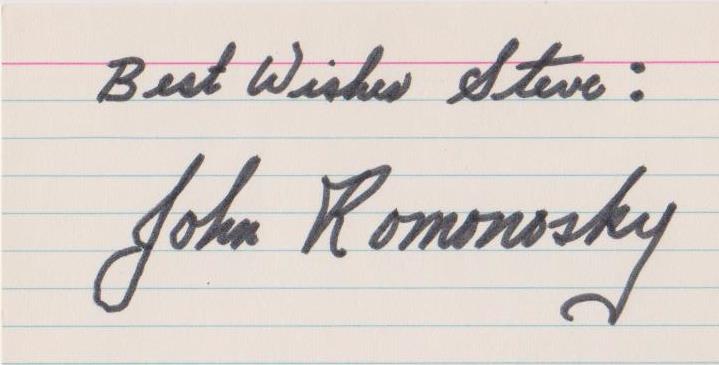 Best Wishes Steve:
John Romonosky